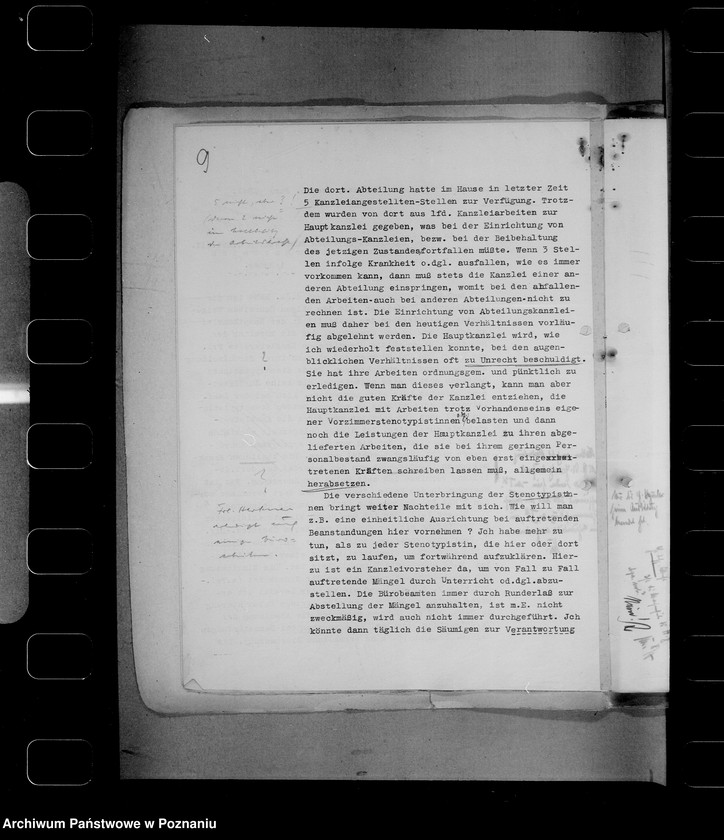 9
Die dort. Abteilung hatte im Hause in letzter Zeit
5 Kanzleiangestellten-Stellen zur Verfügung. Trotz-
dem wurden von dort aus lfd. Kanzleiarbeiten zur
Hauptkanzlei gegeben, was bei der Einrichtung von
Abteilungs-Kanzleien, bezw. bei der Beibehaltung
des jetzigen Zustandes fortfallen müßte. Wenn 3 Stel-
len infolge Krankheit o.dgl. ausfallen, wie es immer
vorkommen kann, dann muß stets die Kanzlei einer an-
deren Abteilung einspringen, womit bei den abfallen-
den Arbeiten-auch bei anderen Abteilungen-nicht zu
rechnen ist. Die Einrichtung von Abteilungskanzlei-
en muß daher bei den heutigen Verhältnissen vorläu-
fig abgelehnt werden. Die Hauptkanzlei wird, wie
ich wiederholt feststellen konnte, bei den augen-
blicklichen Verhältnissen oft zu Unrecht beschuldigt.
Sie hat ihre Arbeiten ordnungsgem. und pünktlich zu
erledigen. Wenn man dieses verlangt, kann man aber
nicht die guten Kräfte der Kanzlei entziehen, die
Hauptkanzlei mit Arbeiten trotz Vorhandenseins eige-
ner Vorzimmerstenotypistinnen belasten und dann
noch die Leistungen der Hauptkanzlei zu ihren abge-
lieferten Arbeiten, die sie bei ihrem geringen Per-
sonalbestand zwangsläufig von eben erst einge
tretenen Kräften schreiben lassen muß, allgemein
herabsetzen.
Die verschiedene Unterbringung der Stenotypistin-
nen bringt weiter Nachteile mit sich. Wie will man
z.B. eine einheitliche Ausrichtung bei auftretenden
Beanstandungen hier vornehmen ? Jch habe mehr zu
tun, als zu jeder Stenotypistin, die hier oder dort
sitzt, zu laufen, um fortwährend aufzuklären. Hier-
zu ist ein Kanzleivorsteher da, um von Fall zu Fall
auftretende Mängel durch Unterricht od.dgl.abzu-
stellen. Die Bürobeamten immer durch Runderlaß zur
Abstellung der Mängel anzuhalten, ist m.E. nicht
zweckmäßig, wird auch nicht immer durchgeführt. Jch
könnte dann täglich die Säumigen zur Verantwortung
Archiwum Państwowe w Poznaniu